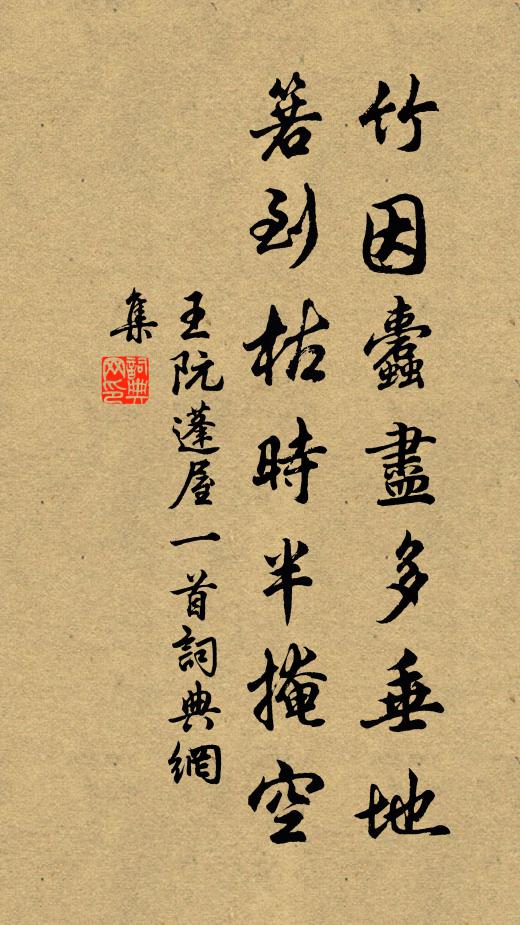 竹因蠹盡多垂地
箬到枯時半掩空
王阮蓬屋一首詞典網
集
詞典網印